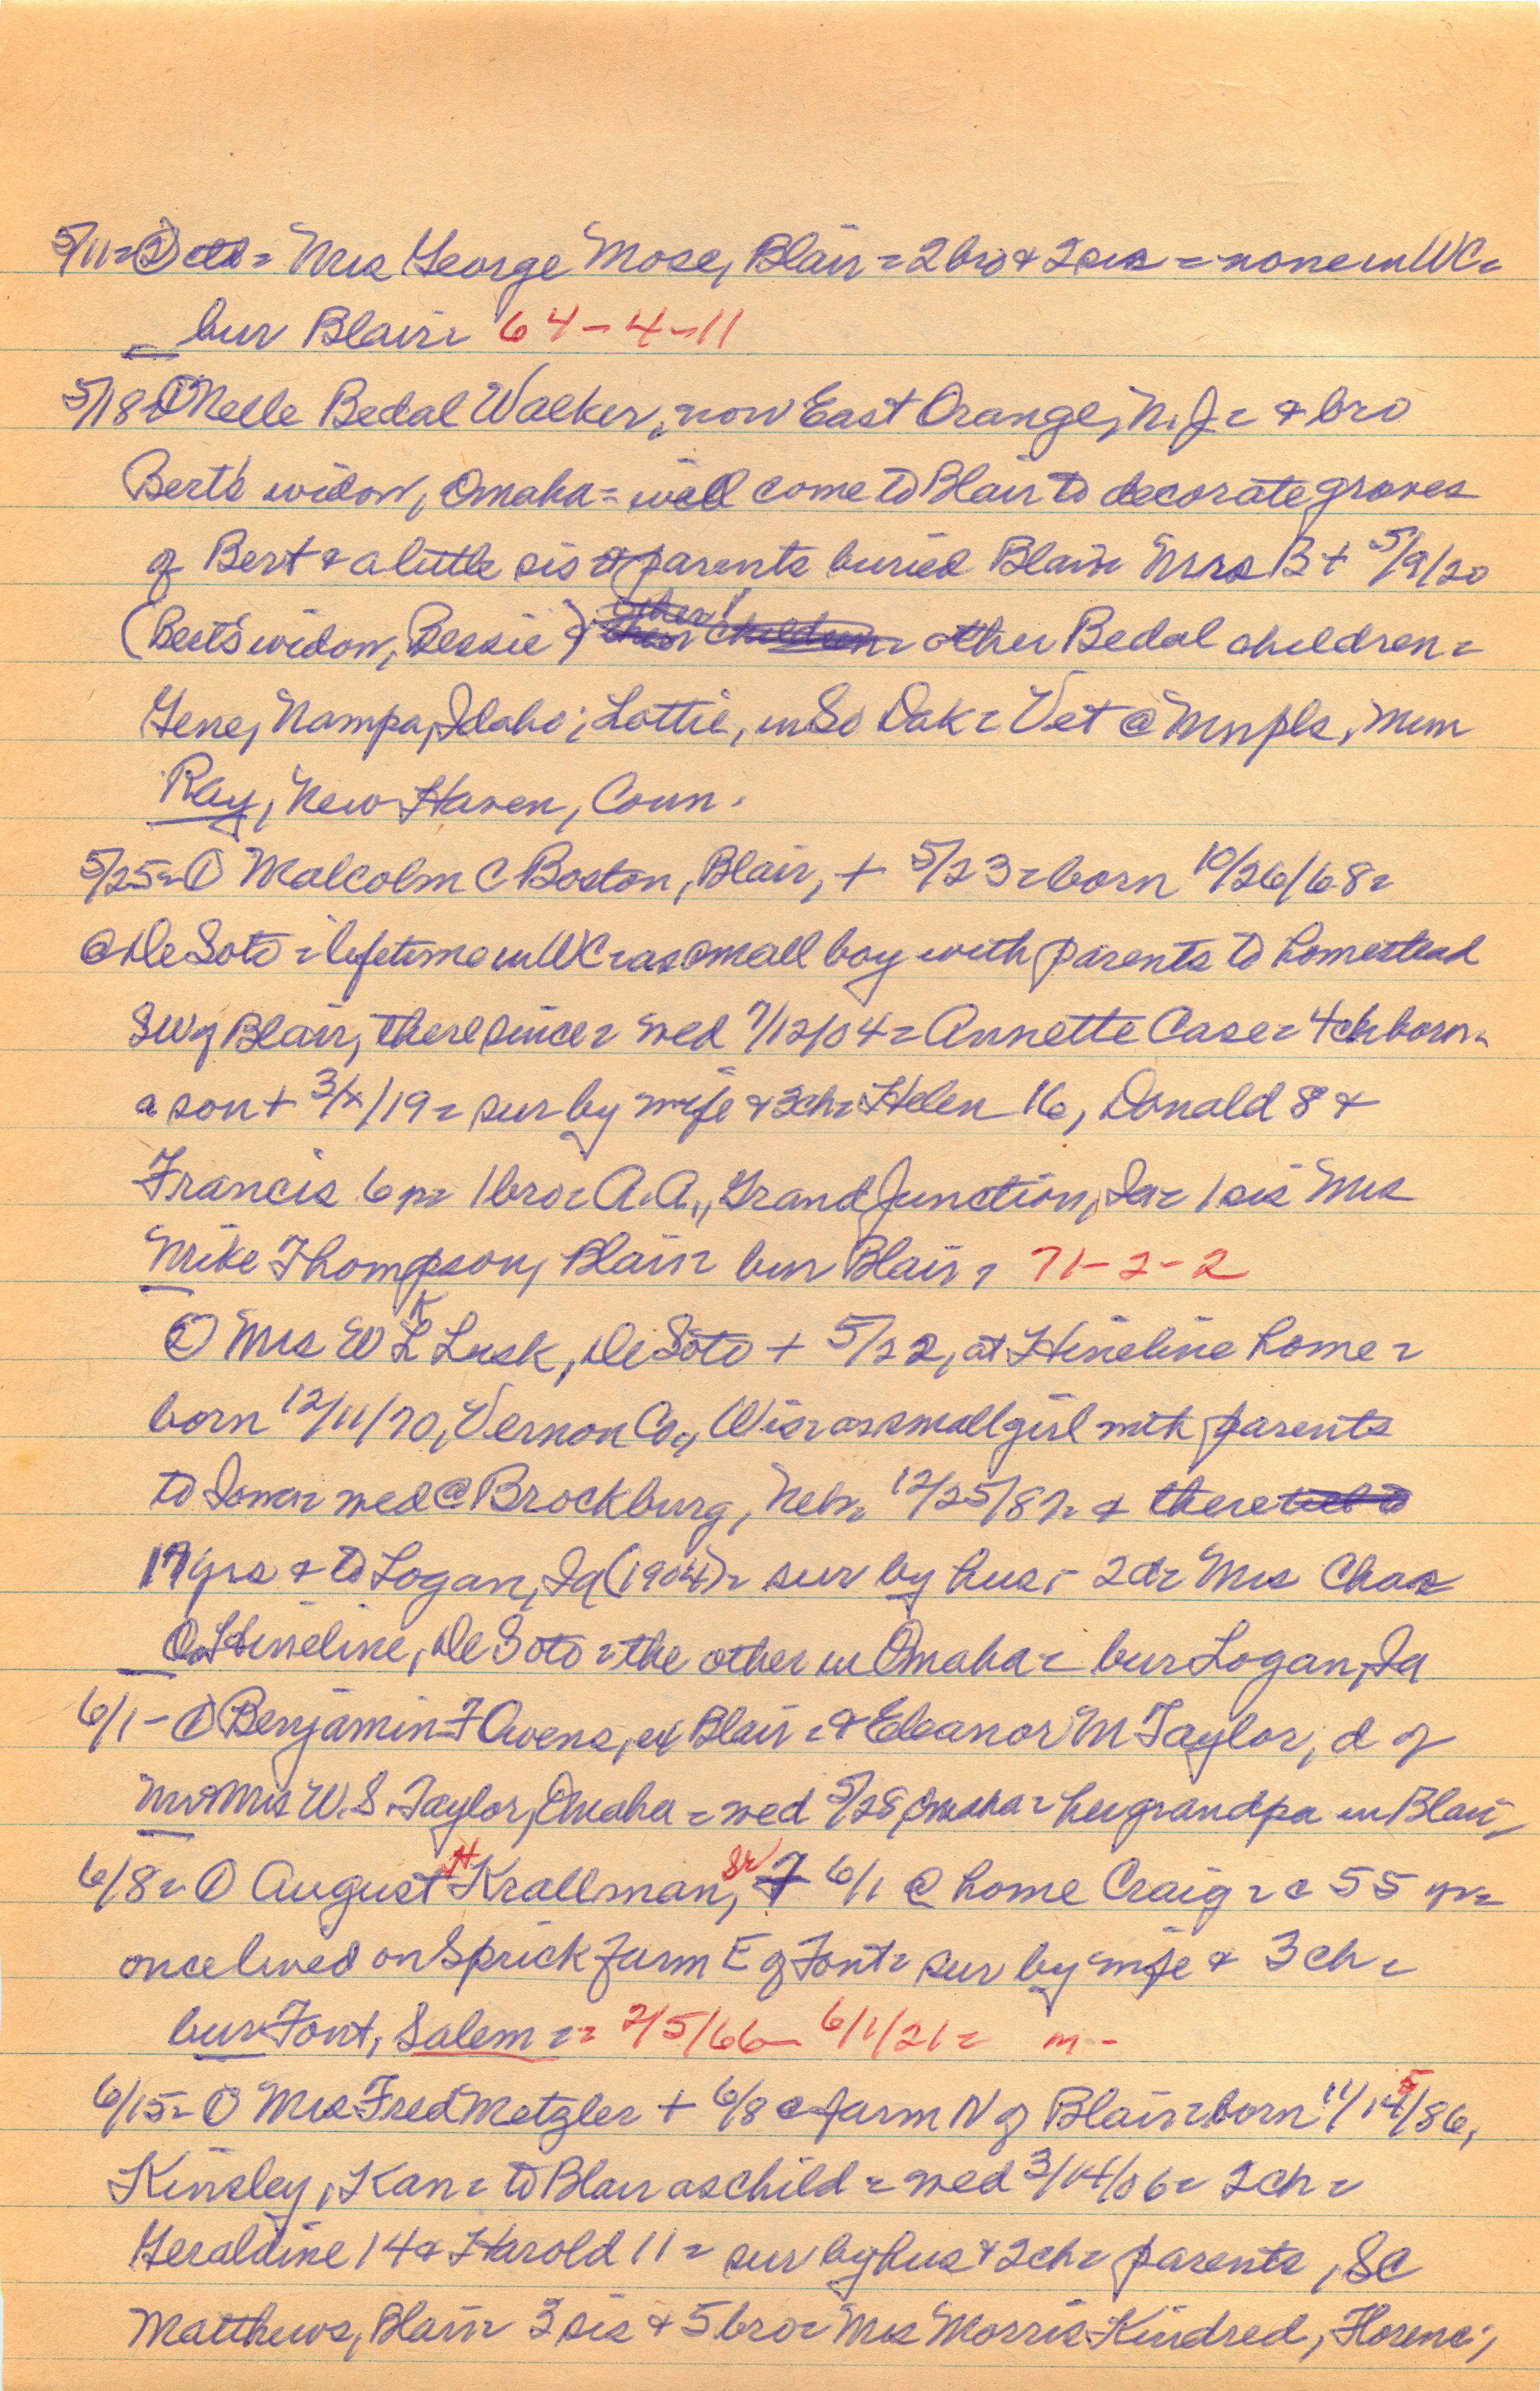 5/11= ② = Mrs George Mose, Blair = 2 bro & 2 sis = none in WC =
bur Blair = 64-4-11
5/18= ① Nelle Bedal Walker, now East Orange, N.J. = & bro
Bert's widow, Omaha = will come to Blair to decorate graves
of Bert & a little sis & parents buried Blair = Mrs B + 5/9/20
(Bert's widow, Bessie) & other Bedal children =
Gene, Nampa, Idaho; Lottie, in So Dak = Vet @ Mnpls, Minn
Ray, New Haven, Conn.
5/25= ① Malcolm C Boston, Blair, + 5/23 = born 10/26/68 =
@ De Soto = lifetime in WC = as small boy with parents to homestead
SW of Blair, there since = wed 7/12/04 = Annette Case = 4 ch born =
a son + 3/x/19 = sur by wife & 3 ch = Helen 16, Donald 8 &
Francis 6 m = 1 bro = A.A., Grand Junction, Ia = 1 sis Mrs
Mike Thompson, Blair = bur Blair = 71-2-2
① Mrs W K L Lusk, De Soto + 5/22, at Hineline home =
born 12/11/70, Vernon Co., Wis = as small girl with parents
to Iowa = wed @ Brockburg, Neb = 12/25/87 = & there
17 yrs & to Logan, Ia (1904) = sur by hus = 2 d = Mrs Chas
O. Hineline, De Soto = the other in Omaha = bur Logan, Ia
6/1- ① Benjamin F Owens, ex Blair = & Eleanor M Taylor, d of
Mr & Mrs W.S. Taylor, Omaha = wed 5/28, Omaha = her grandpa in Blair,
6/8= ① August H Krallman, Sr + 6/1 @ home Craig = c 55 yr =
once lived on Sprick farm E of Font = sur by wife & 3 ch =
bur Font, Salem == 2/5/66- 6/1/21= m -
6/15= ① Mrs Fred Metzler + 6/8 @ farm N of Blair = born 11/14 5/86,
Kinsley, Kan = to Blair as child = wed 3/14/06 = 2 ch =
Geraldine 14 & Harold 11 = sur by hus & 2 ch = parents, SC
Matthews, Blair = 3 sis & 5 bro = Mrs Morris Kindred, Florence,